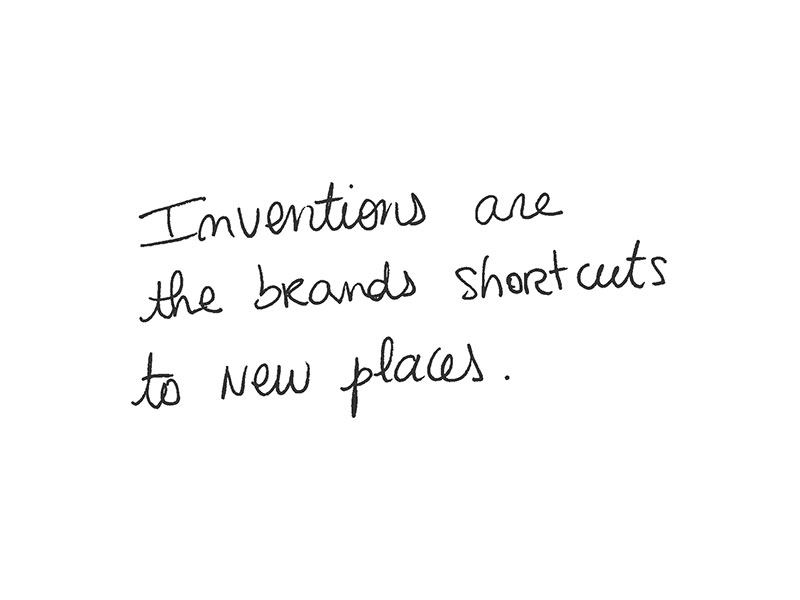 Inventions are
the brands shortcuts
to new places.